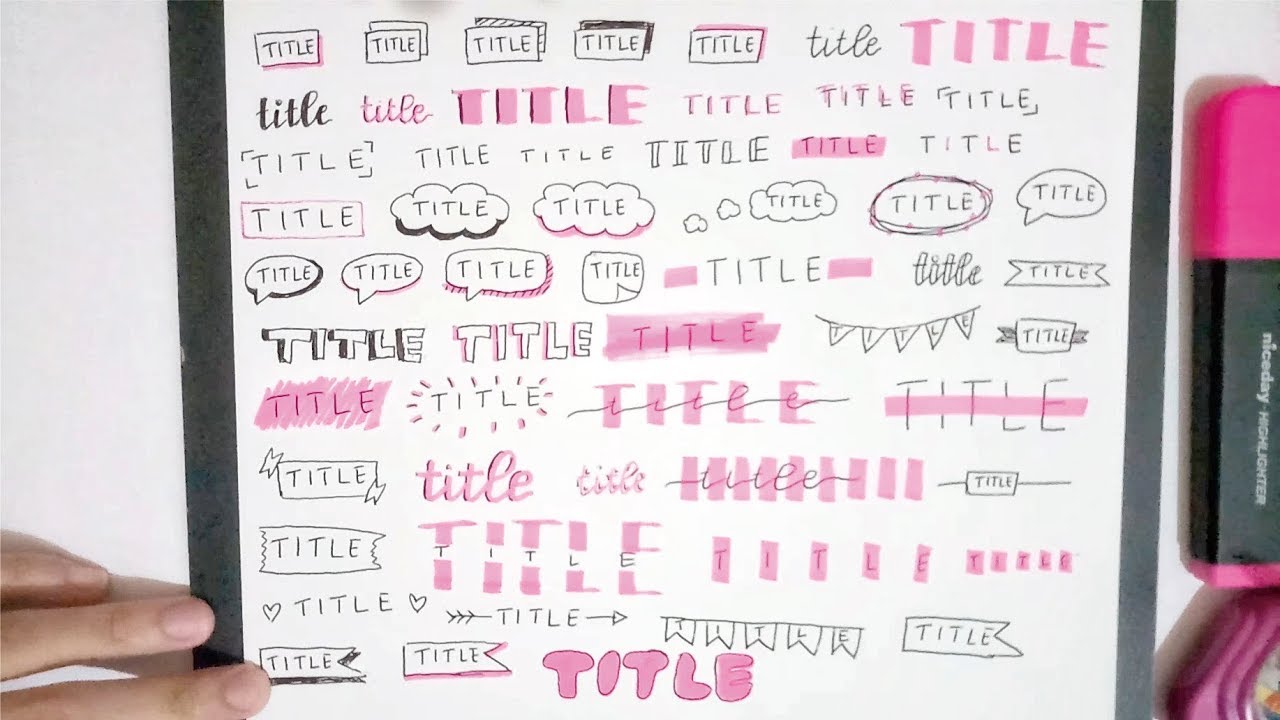 TITLE TITLE TITLE TITLE TITLE title TITLE
title title TITLE TITLE TITLE TITLE
TITLE TITLE TITLE TITLE TITLE TITLE
TITLE TITLE TITLE TITLE TITLE TITLE
TITLE TITLE TITLE TITLE TITLE title TITLE
TITLE TITLE TITLE TITLE TITLE
TITLE TITLE title TITLE
TITLE title title title TITLE
TITLE TITLE TITLE TITLE
TITLE TITLE TITLE TITLE
TITLE TITLE TITLE
niceday HIGHLIGHTER